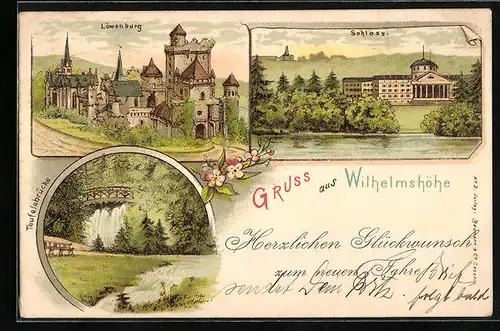 Löwenburg
Schloss.
Teufelsbrücke
Gruss aus Wilhelmshöhe
Herzlichen Glückwunsch
zum neuen Jahre
sendet Dein
folgt bald